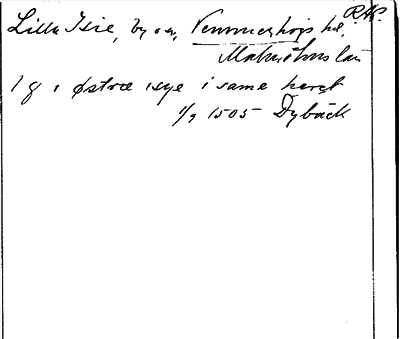 RAP.
Lilla Isie, by o sn, Vemmenhögs hd,
Malmöhus län
1 g i østræ isye i same heret
1/9 1505 Dybäck